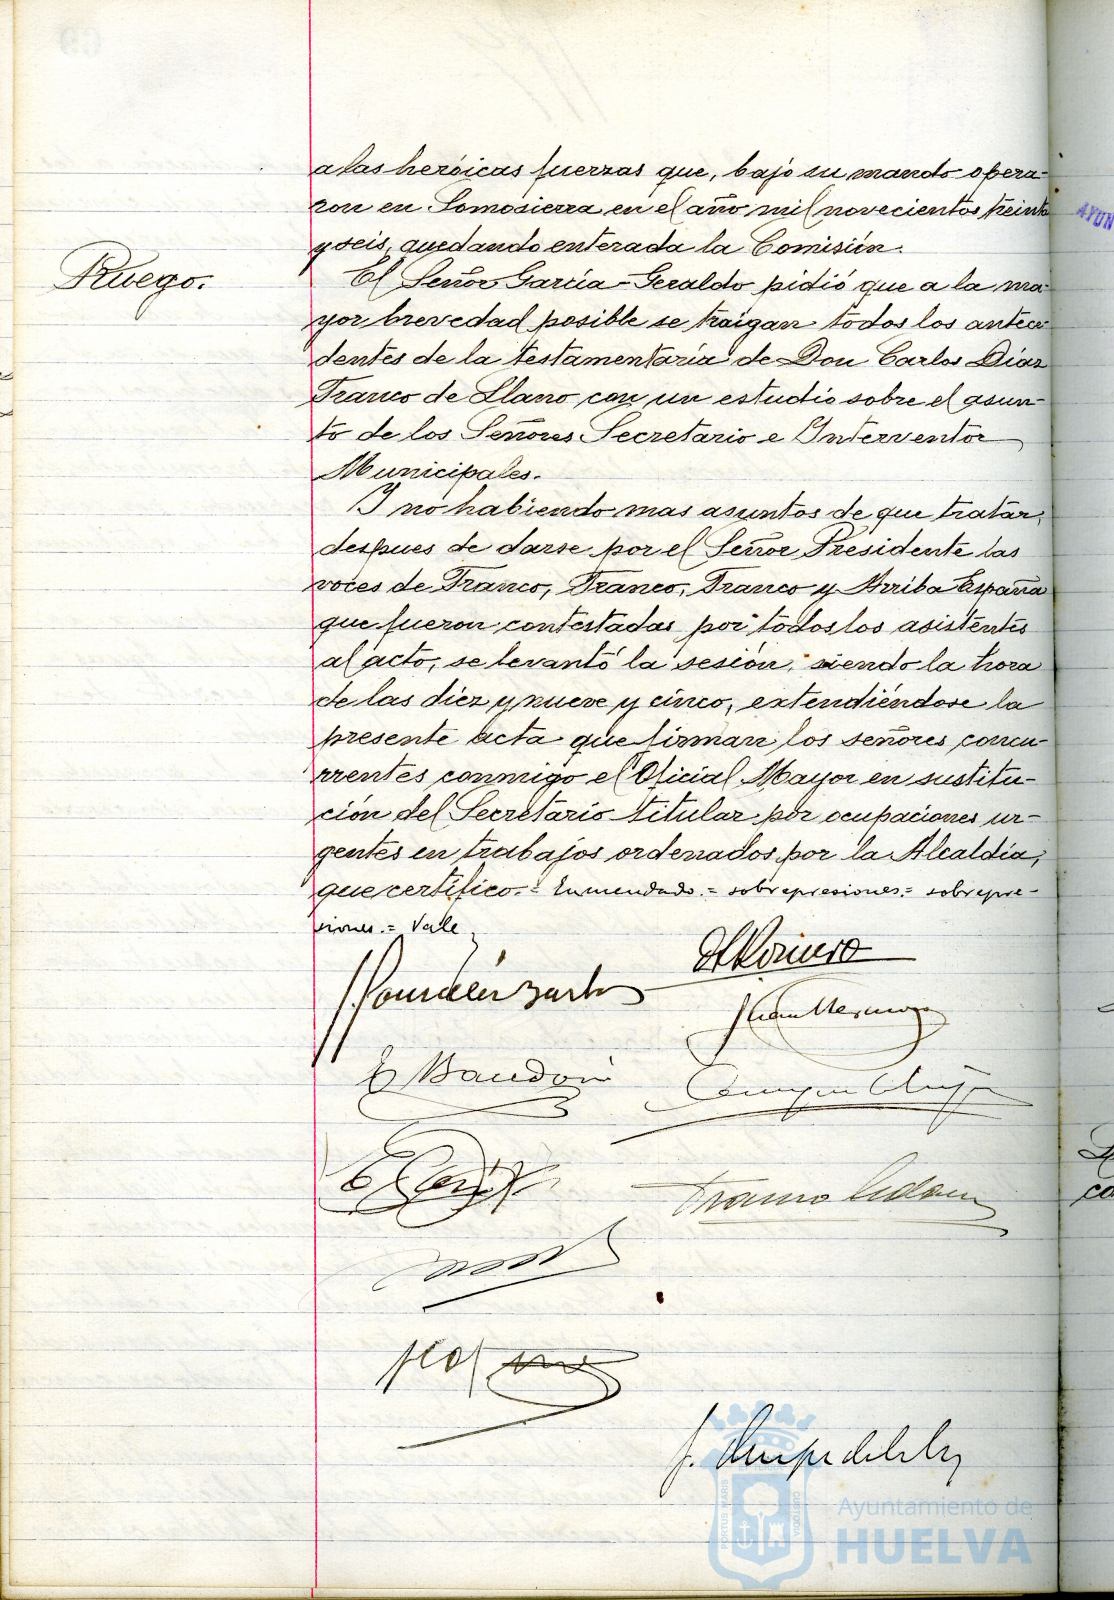 a las heróicas fuerzas que, bajo su mando opera-
ron en Somosierra en el año mil novecientos treinta
y seis, quedando enterada la Comisión.
Ruego.
El Señor García-Geraldo pidió que a la ma-
yor brevedad posible se traigan todos los antece-
dentes de la testamentaría de Don Carlos Díaz
Franco de Llano con un estudio sobre el asun-
to de los Señores Secretario e Interventor
Municipales.
Y no habiendo mas asuntos de que tratar,
despues de darse por el Señor Presidente las
voces de Franco, Franco, Franco y Arriba España
que fueron contestadas por todos los asistentes
al acto, se levantó la sesión, siendo la hora
de las diez y nueve y cinco, extendiéndose la
presente acta que firman los señores concu-
rrentes conmigo el Oficial Mayor en sustitu-
ción del Secretario titular por ocupaciones ur-
gentes en trabajos ordenados por la Alcaldía,
que certifico.= Enmendado.= sobrepresiones.= sobrepre-
siones.= Vale
E Baudoin
AYUN
PORTUS MARIS
CUSTODIA
Ayuntamiento de
HUELVA